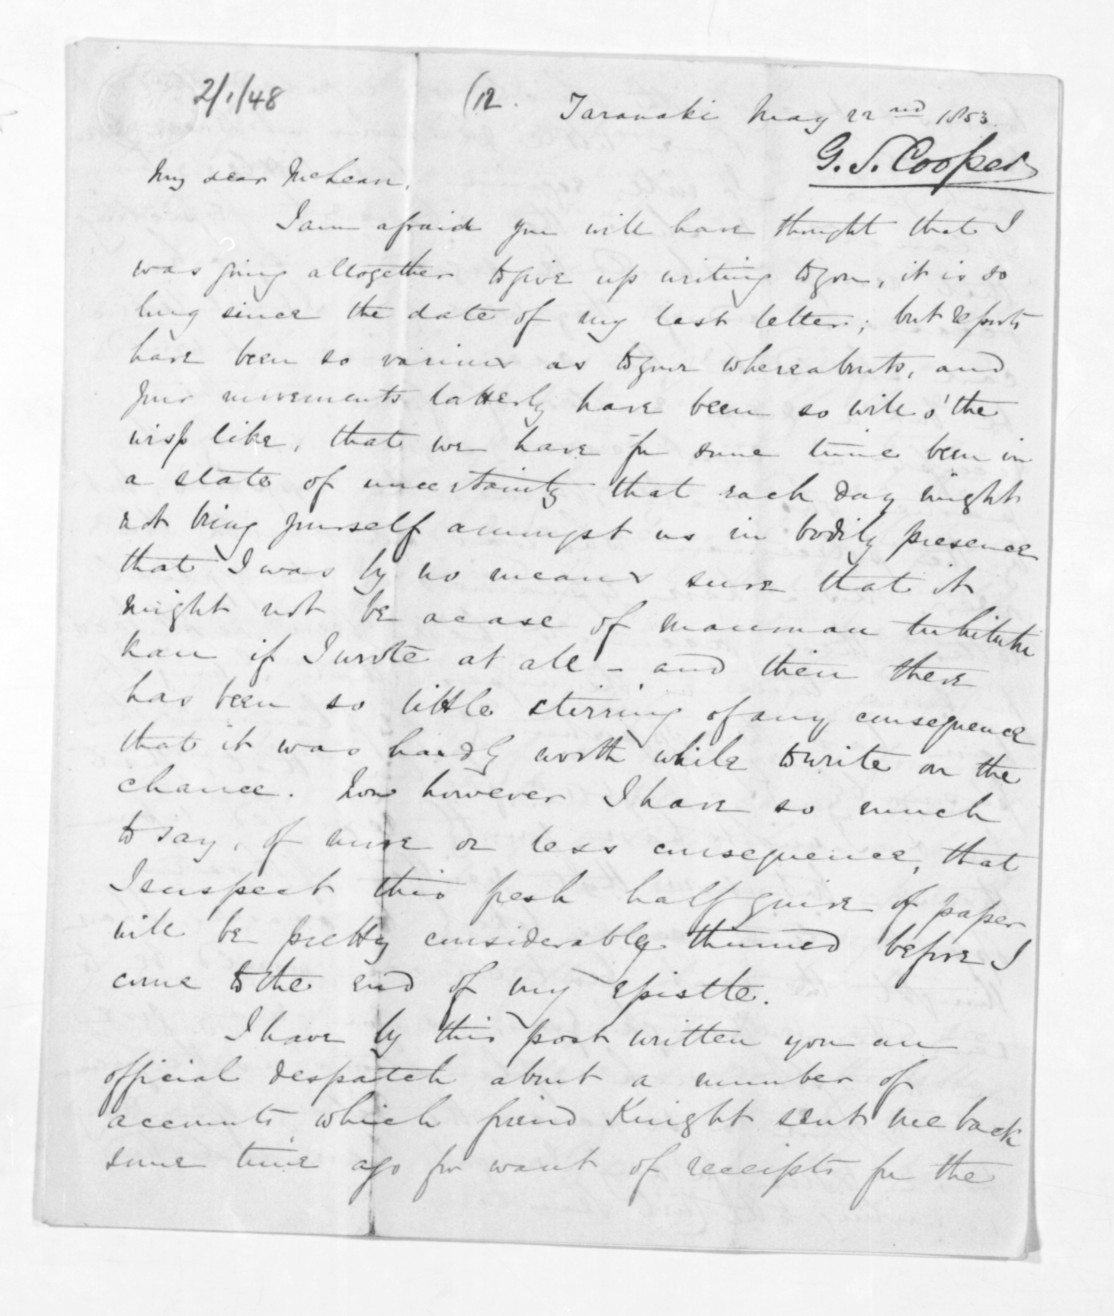 2/1/48
(12.
Taranaki May 22nd 1853.
G. S. Cooper
My dear McLean,
I am afraid you will have thought that I
was going altogether to give up writing to you, it is so
long since the date of my last letter; but reports
have been so various as to your whereabouts, and
your movements latterly have been so will o' the
wisp like, that we have for some time been in
a state of uncertainty that each day might
not bring yourself amongst us in bodily presence
that I was by no means sure that it
might not be a case of maumau
kau if I wrote at all – and then there
has been so little stirring of any consequence
that it was hardly worth while to write on the
chance. Now however I have so much
to say, of more or less consequence, that
I suspect this fresh half quire of paper
will be pretty considerably thinned before I
come to the end of my epistle.
I have by this post written you an
official despatch about a number of
accounts which friend Knight sent me back
some time ago for want of receipts for the